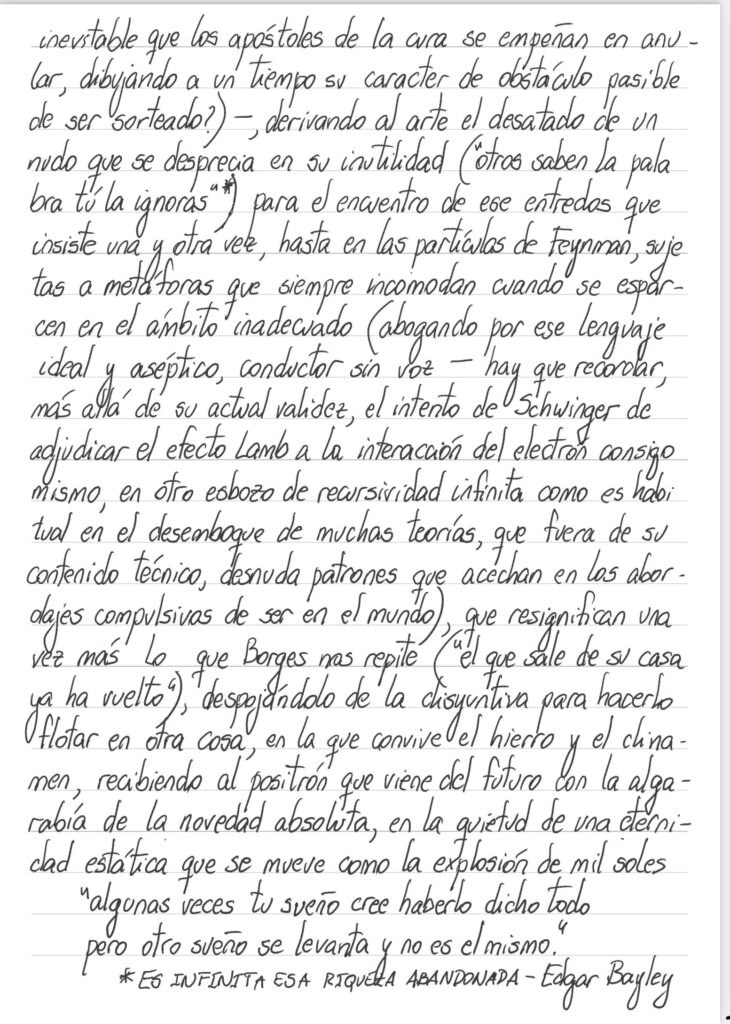 inevitable que los apóstoles de la cura se empeñan en anu-
lar, dibujando a un tiempo su caracter de obstáculo pasible
de ser sorteado?) —, derivando al arte el desatado de un
nudo que se desprecia en su inutilidad ("otros saben la pala
bra tú la ignoras"*) para el encuentro de ese entredos que
insiste una y otra vez, hasta en las partículas de Feynman, suje
tas a metáforas que siempre incomodan cuando se espar-
cen en el ámbito inadecuado (abogando por ese lenguaje
ideal y aséptico, conductor sin voz — hay que recordar,
más allá de su actual validez, el intento de Schwinger de
adjudicar el efecto Lamb a la interacción del electrón consigo
mismo, en otro esbozo de recursividad infinita como es habi
tual en el desemboque de muchas teorías, que fuera de su
contenido técnico, desnuda patrones que acechan en los abor-
dajes compulsivos de ser en el mundo), que resignifican una
vez más lo que Borges nos repite ("el que sale de su casa
ya ha vuelto"), despojándolo de la disyuntiva para hacerlo
flotar en otra cosa, en la que convive el hierro y el china-
men, recibiendo al positrón que viene del futuro con la alga-
rabía de la novedad absoluta, en la quietud de una eterni-
dad estática que se mueve como la explosión de mil soles
"algunas veces tu sueño cree haberlo dicho todo
pero otro sueño se levanta y no es el mismo."
* ES INFINITA ESA RIQUEZA ABANDONADA - Edgar Bayley